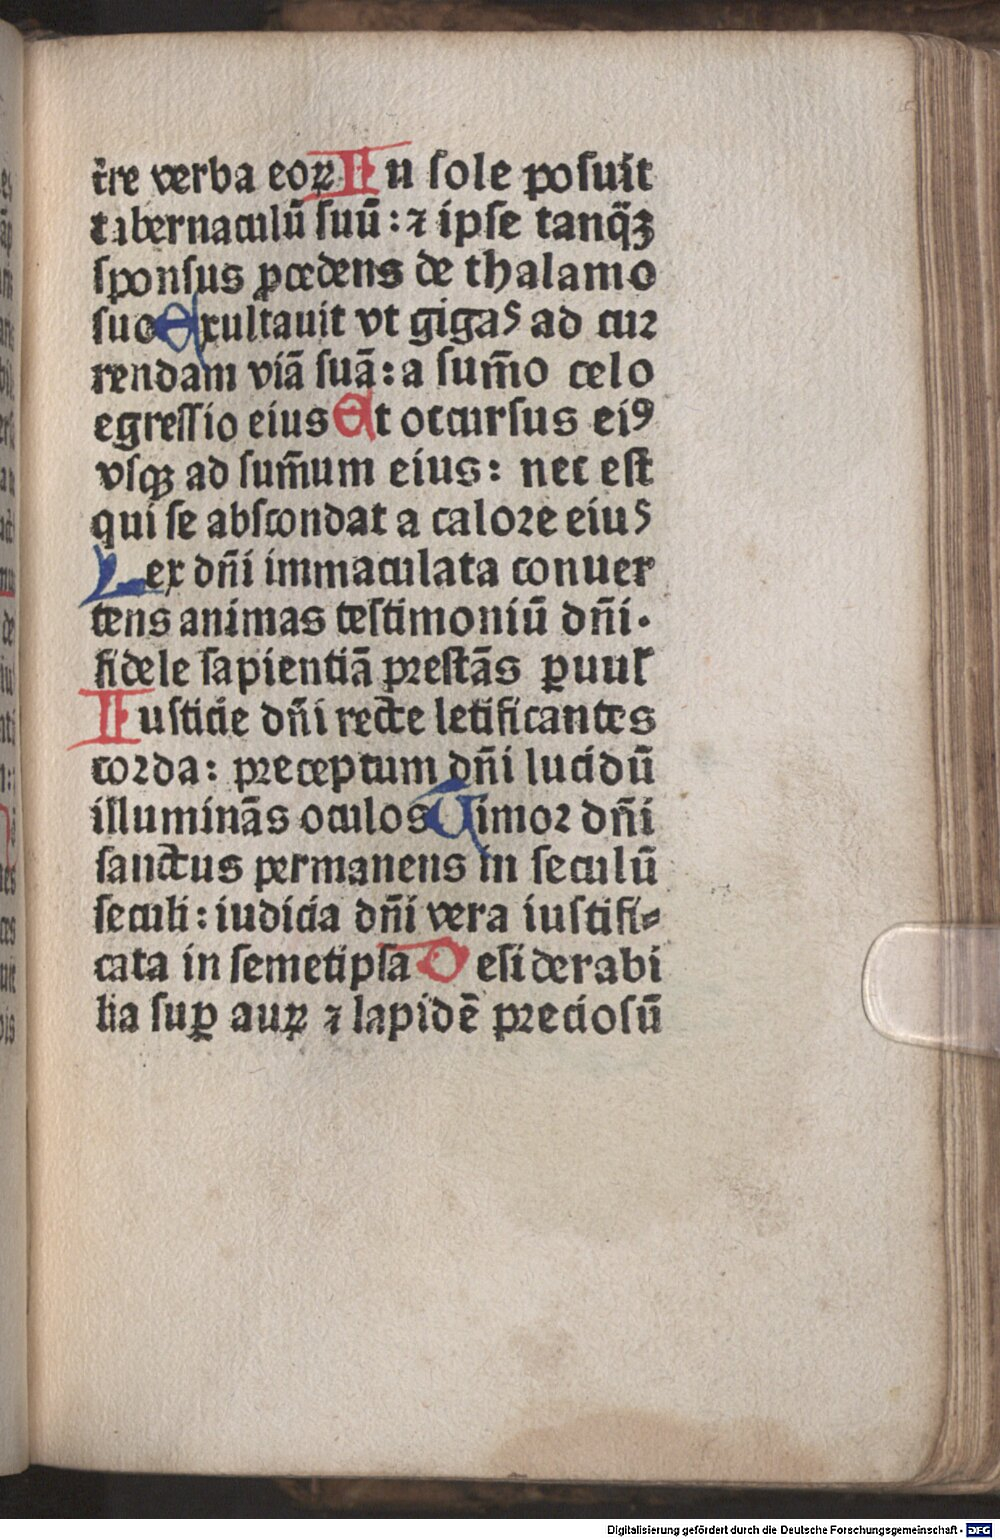 t̃re verba eoꝝ In sole posuit
tabernaculū suū : ⁊ ipse tanq̃ꝫ
sponsus ꝓcedens de thalamo
suo Exultauit vt gigas ad cur
rendam viā suā : a sum̄o celo
egressio eius Et occursus eiꝰ
vsqꝫ ad sum̄um eius : nec est
qui se abscondat a calore eius
Lex dn̄i immaculata conuer
tens animas testimoniū dn̄i .
fidele sapientiā prestās ꝑuul̕
Iusticie dn̄i recte letificantes
corda : preceptum dn̄i lucidū
illuminās oculos Timor dn̄i
sanctus permanens in seculū
seculi : iudicia dn̄i vera iustifi⸗
cata in semetipsa Desiderabi
lia suꝑ auꝝ ⁊ lapidē preciosū
Digitalisierung gefördert durch die Deutsche Forschungsgemeinschaft - DFG